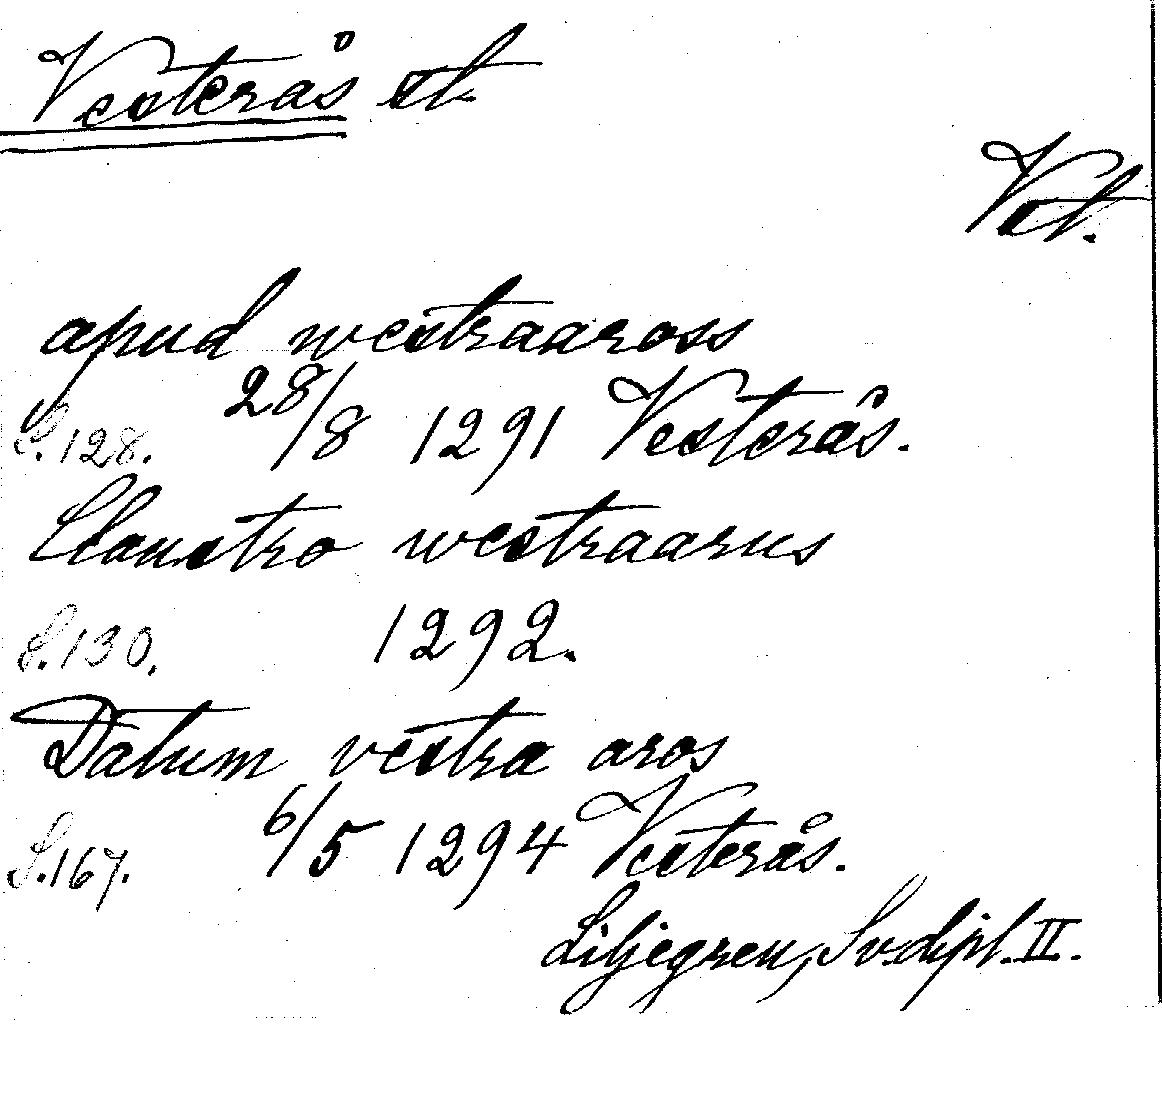 Vesterås st.
Vst.
apud westraaross
S.128. 28/8 1291 Vesterås.
Claustro westraarus
S.130. 1292.
Datum vestra aros
S.167. 6/5 1294 Vesterås.
Liljegren, Sv.dipl. II.